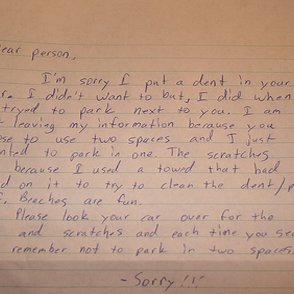 ear person,
I'm sorry I put a dent in your
r. I didn't want to but, I did when
tryed to park next to you. I am
leaving my information because you
ose to use two spaces and I just
nted to park in one. The scratches
because I used a towed that had
d on it to try to clean the dent/p
. Breches are fun.
Please look your car over for the
and scratches and each time you see
remember not to park in two spaces.
-Sorry!!!